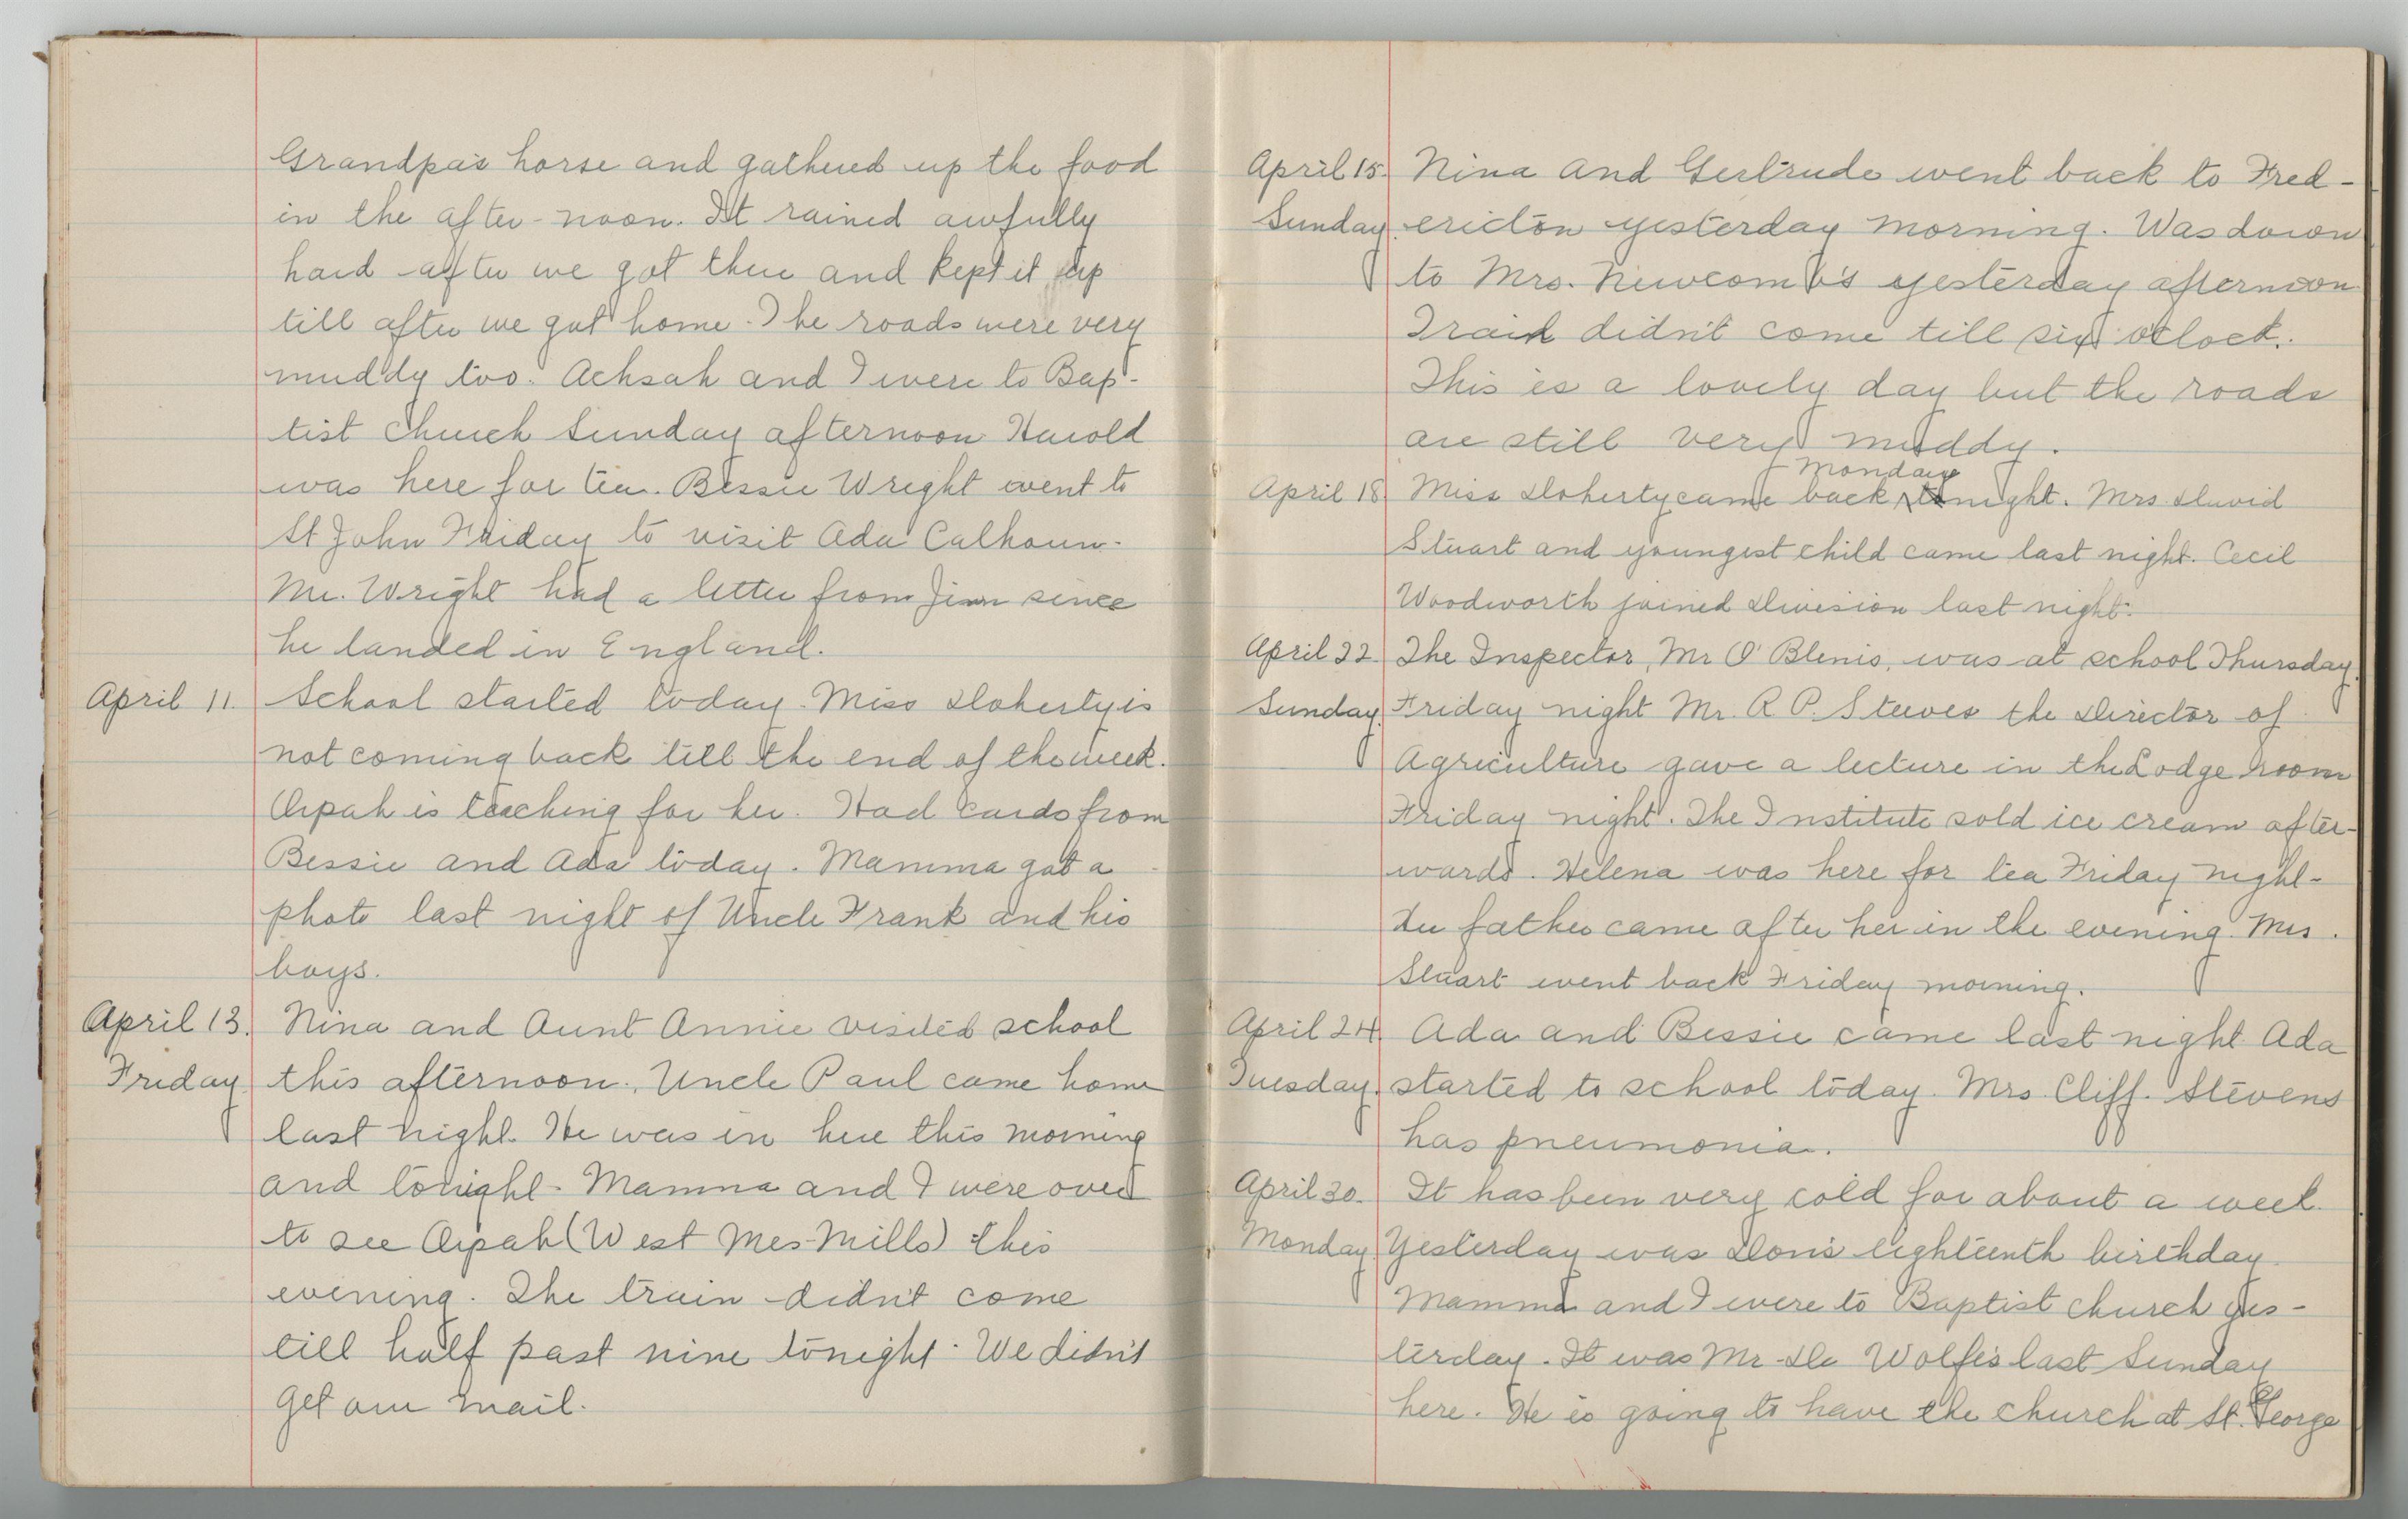 Grandpa's horse and gathered up the food
in the after-noon. It rained awfully
hard after we got there and kept it up
till after we got home. The roads were very
muddy too. Achsah and I were to Bap-
tist Church Sunday afternoon Harold
was here for tea. Bessie Wright went to
St John Friday to visit Ada Calhoun.
Mr. Wright had a letter from Jim since
he landed in England.
April 11. School started today. Miss Doherty is
not coming back till the end of the week.
Orpah is teaching for her. Had cards from
Bessie and Ada today. Mamma got a
photo last night of Uncle Frank and his
boys.
April 13. Nina and Aunt Annie visited school
Friday this afternoon. Uncle Paul came home
last night. He was in here this morning
and tonight. Mamma and I were over
to see Orpah (West Mes-Mills) this
evening. The train didn't come
till half past nine tonight. We didn't
get our mail.
April 15. Nina and Gertrude went back to Fred-
Sunday. ericton yesterday morning. Was down
to Mrs. Newcomb's yesterday afternoon
Train didn't come till six o'clock.
This is a lovely day but the roads
are still very muddy.
Monday
April 18. Miss Doherty came back night. Mrs. David
Stuart and youngest child came last night. Cecil
Woodworth joined Division last night.
April 22. The Inspector, Mr O'Blenis, was at school Thursday.
Sunday. Friday night Mr. R. P. Steeves the Director of
Agriculture gave a lecture in the Lodge room
Friday night. The Institute sold ice cream after-
wards. Helena was here for tea Friday night-
Her father came after her in the evening. Mrs.
Stuart went back Friday morning.
April 24. Ada and Bessie came last night. Ada
Tuesday. started to school today. Mrs. Cliff. Stevens
has pneumonia.
April 30. It has been very cold for about a week.
Monday. Yesterday was Don's eighteenth birthday.
Mamma and I were to Baptist church yes-
terday. It was Mr. De Wolfe's last Sunday
here. He is going to have the church at St. George